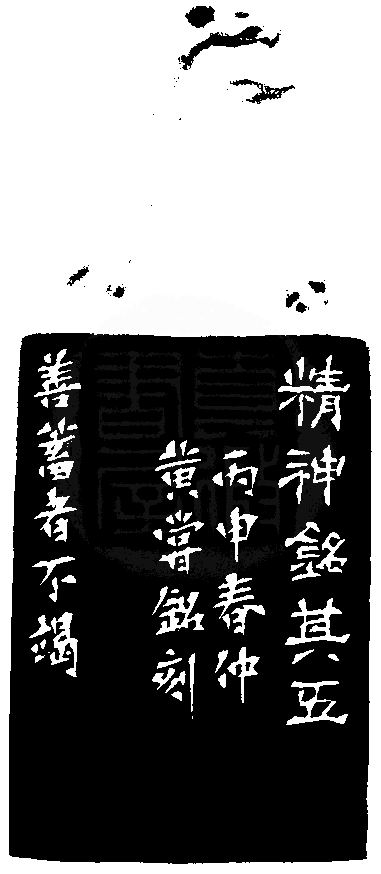 精神銘其五
丙申春仲
黃嘗銘刻
善蓄者不竭
真微
書屋